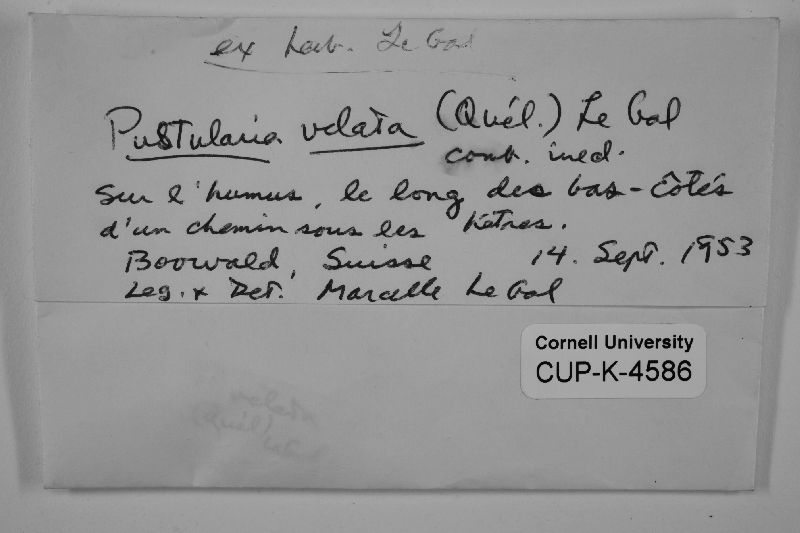 ex herb. Le Gal
Pustularia velata (Quél.) Le Gal
comb. ined.
Sur l'humus, le long des bas-côtés
d'un chemin sous les hêtres.
Boowald, Suisse 14. Sept. 1953
Leg. & Det. Marcelle Le Gal
Cornell University
CUP-K-4586
velata
(Quél)